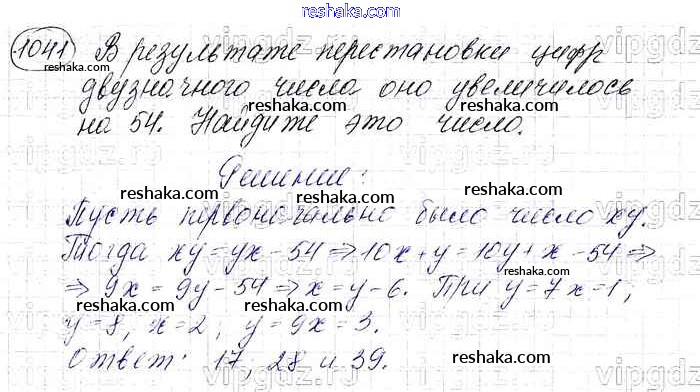 reshaka.com
1041 В результате перестановки цифр
reshaka.com
двузначного числа оно увеличилось
reshaka.com reshaka.com
на 54. Найдите это число.
Решение:
reshaka.com reshaka.com
Пусть первоначально было число xy.
Тогда xy=yx-54⇒10x+y=10y+x-54⇒
reshaka.com reshaka.com
⇒9x=9y-54⇒x=y-6. При y=7 x=1;
y=8, x=2; y=9 x=3.
reshaka.com
Ответ: 17; 28 и 39.
reshaka.com
reshaka.com